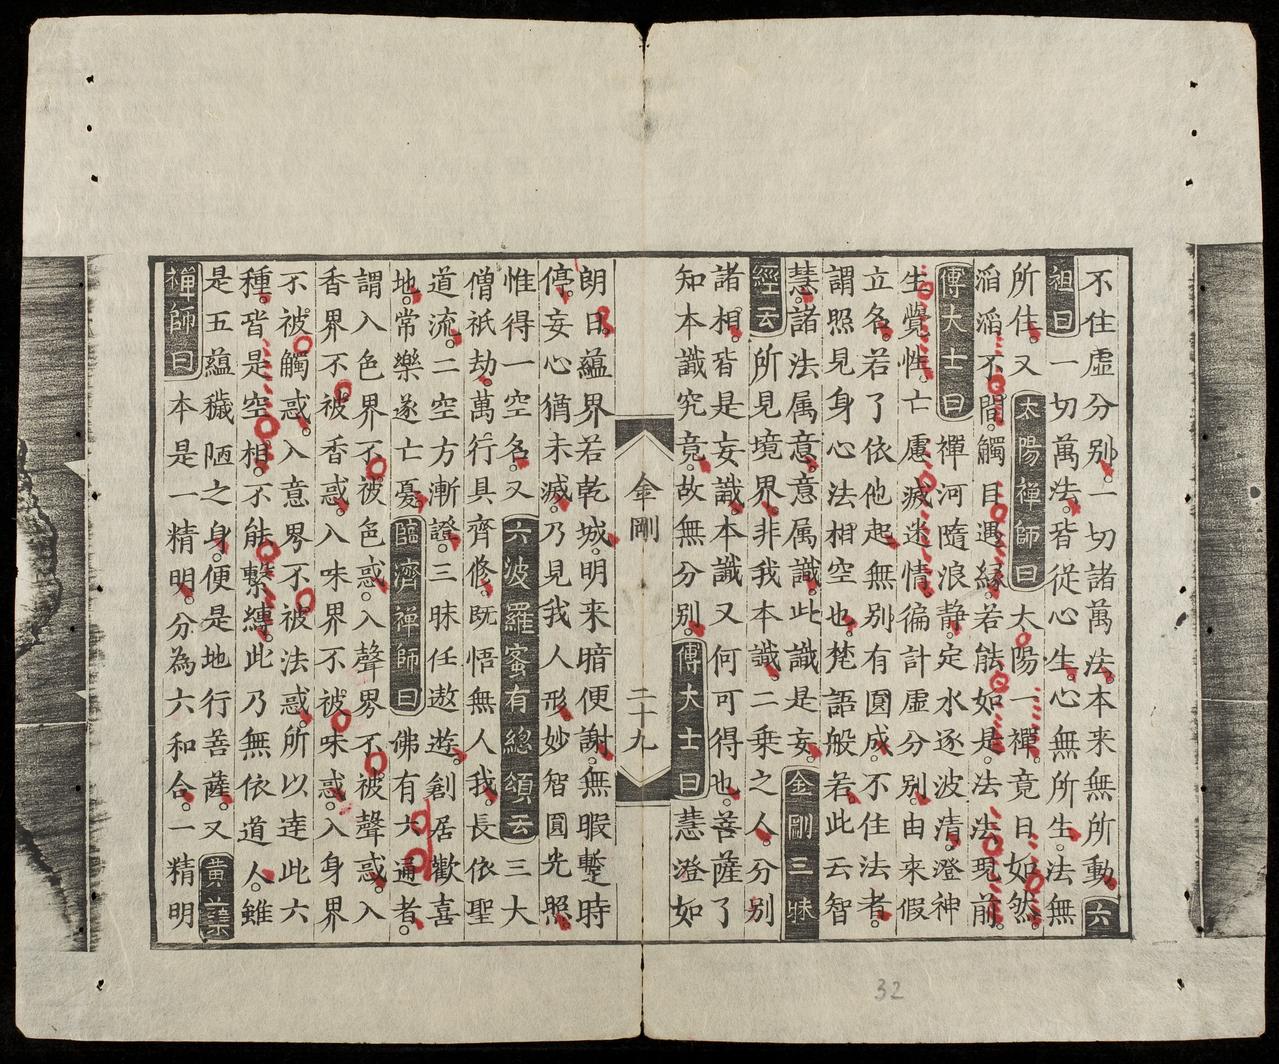 不住虛分别。一切諸萬法。本来無所動。六
祖曰一切萬法。皆從心生。心無所生。法無
所住。又太陽禅師曰太陽一禅。竟日如然。
滔滔不間。觸目遇緣。若能如是。法法現前。
傅大士曰禪河隨浪静。定水逐波清。澄神
生覺性。亡慮滅迷情。徧計虛分别。由来假
立名。若了依他起。無别有圓成。不住法者。
謂照見身心法相空也。梵語般若。此云智
慧。諸法属意。意属識。此識是妄。金剛三昧
經云所見境界。非我本識。二乗之人。分别
諸相。皆是妄識。本識又何可得也。菩薩了
知本識究竟。故無分别。傅大士曰慧澄如
金剛 二十九
朗日。蘊界若乾城。明来暗便謝。無暇蹔時
停。妄心猶未滅。乃見我人形。妙智圓光照。
惟得一空名。又六波羅蜜有總頌云三大
僧祇劫。萬行具齊修。既悟無人我。長依聖
道流。二空方漸證。三昧任遨遊。創居歡喜
地。常樂遂亡憂。臨濟禅師曰佛有六通者。
謂入色界不被色惑。入聲界不被聲惑。入
香界不被香惑。入味界不被味惑。入身界
不被觸惑。入意界不被法惑。所以達此六
種。皆是空相。不能繫縛。此乃無依道人。雖
是五蘊穢陋之身。便是地行菩薩。又黄蘗
禅師曰本是一精明。分為六和合。一精明
32